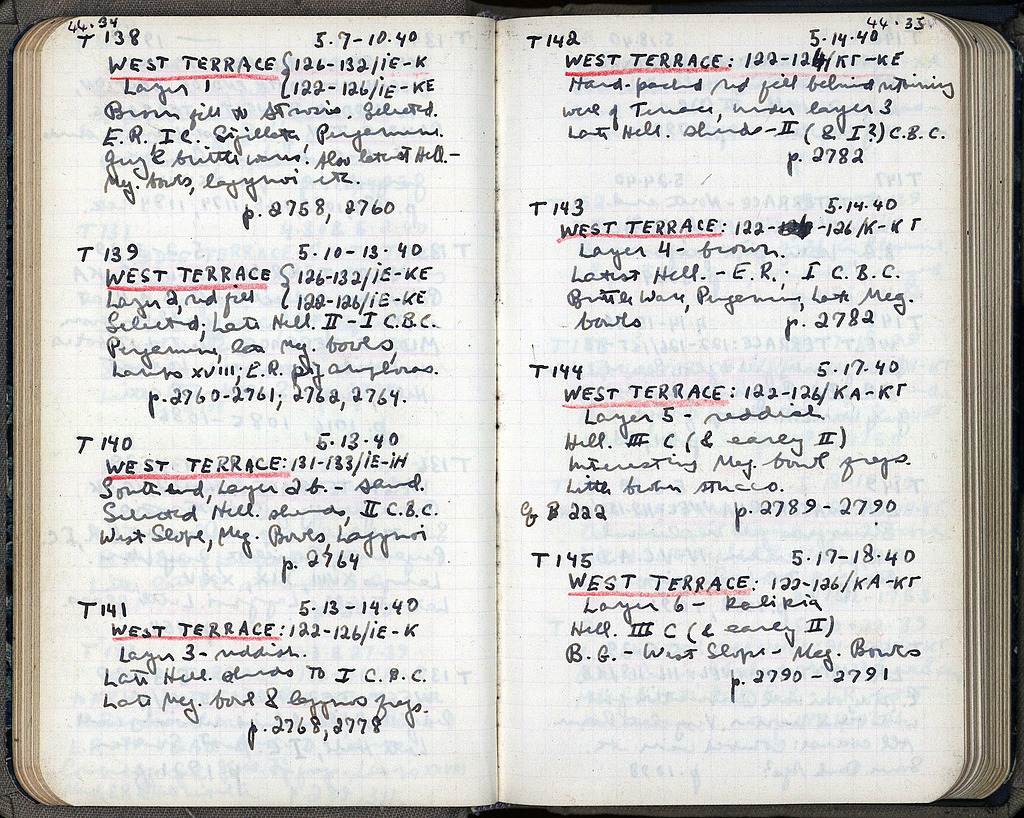 44.34
T 138 5.7-10.40
WEST TERRACE {126-132/IE-K
Layer 1 {122-126/IE-KE
Brown fill to St wins. Selected.
E.R. I C. Sigillata Pergamene.
grey & brittle ware. Also latest Hell.-
Meg. bowls, lagynoi etc.
p. 2758, 2760
T 139 5.10-13.40
WEST TERRACE {126-132/IE-KE
Layer 2, red fill {122-126/IE-KE
Selected; Late Hell. II-I C.B.C.
Pergamene, late Meg. bowls,
Lamps XVIII; E.R. amphoras.
p. 2760-2761; 2762, 2764.
T 140 5.13.40
WEST TERRACE: 131-133/IE-IH
South end, Layer 2b. - sand.
Selected Hell. sherds, II C.B.C.
West Slope, Meg. Bowls, Lagynoi
p. 2764
T 141 5.13-14.40
WEST TERRACE: 122-126/IE-K
Layer 3 - reddish.
Late Hell. sherds to I C.B.C.
Late Meg. bowl & lagynos frags.
p. 2768, 2778
44.35
T 142 5.14.40
WEST TERRACE: 122-124/KΓ-KE
Hard-packed red fill behind retaining
wall of Terrace, under layer 3
Late Hell. sherds - II (& I?) C.B.C.
p. 2782
T 143 5.14.40
WEST TERRACE: 122-126/K-KΓ
Layer 4 - brown.
Latest Hell. - E.R.; I C.B.C.
Brittle Ware, Pergamene, Late Meg.
bowls p. 2782
T 144 5.17.40
WEST TERRACE: 122-126/KA-KΓ
Layer 5 - reddish
Hell. III C (& early II)
Interesting Meg. bowl frags.
Little brown stucco.
cf B 222 p. 2789-2790
T 145 5.17-18.40
WEST TERRACE: 122-126/KA-KΓ
Layer 6 - kalikia
Hell. III C (& early II)
B.G. - West Slope - Meg. Bowls
p. 2790-2791